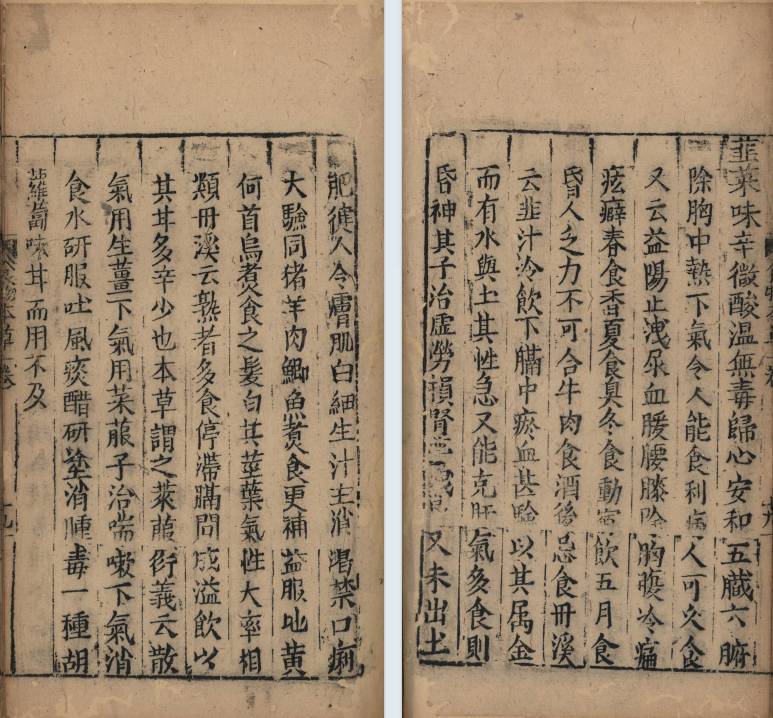 韭菜味辛微酸溫無毒歸心安和五臟六腑
除胸中熱下氣令人能食利病人可久食
又云益陽止洩尿血暖腰膝除胸腹冷痛
痃癖春食香夏食臭冬食動宿飲五月食
昏人乏力不可合牛肉食酒後忌食丹溪
云韭汁冷飲下膈中瘀血甚驗以其属金
而有水與土其性急又能克肝氣多食則
昏神其子治虛勞損腎又未出土
肥健人令膚肌白細生汁主消渴禁口痢
大驗同猪羊肉鯽魚煮食更補益服地黃
何首烏煮食之髮白其莖葉氣性大率相
類丹溪云熟者多食停滯膈間成溢飲以
其甘多辛少也本草謂之萊菔衍義云散
氣用生薑下氣用萊菔子治喘嗽下氣消
食水研服吐風痰醋研塗消腫毒一種胡
蘿蔔味甘而用不及
食物本草卷